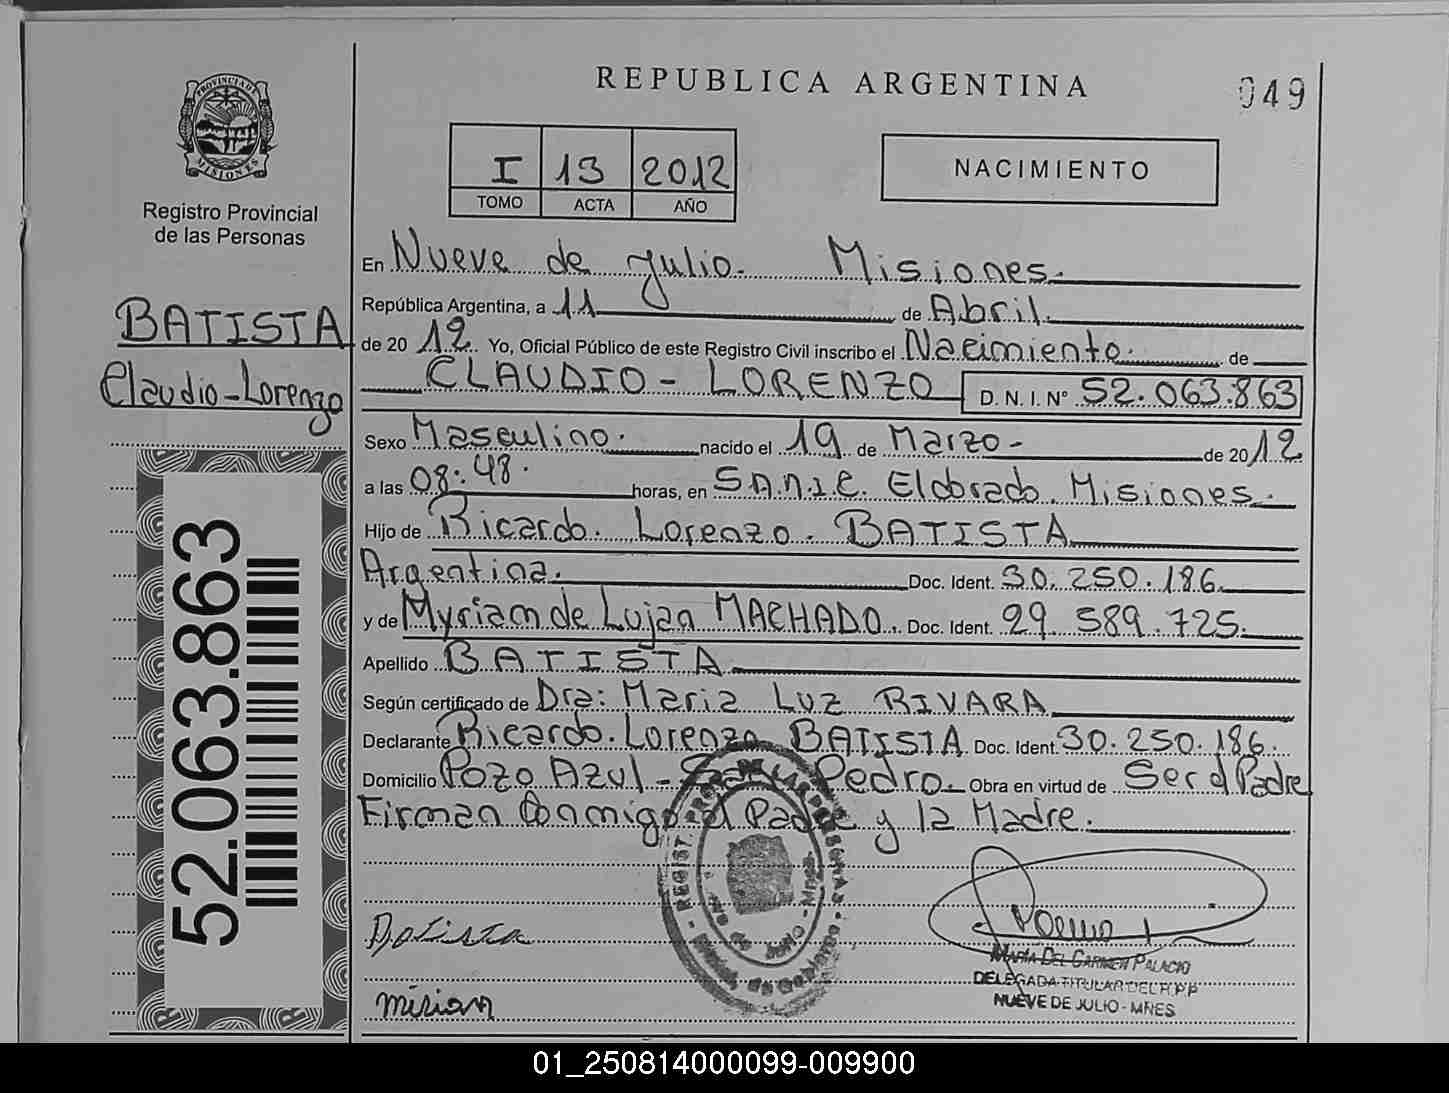 REPUBLICA ARGENTINA
049
PROVINCIA DE MISIONES
Registro Provincial
de las Personas
I 13 2012
TOMO ACTA AÑO
NACIMIENTO
BATISTA
Claudio-Lorenzo
52.063.863
En Nueve de Julio. Misiones.
República Argentina, a 11 de Abril.
de 2012 Yo, Oficial Público de este Registro Civil inscribo el Nacimiento. de
CLAUDIO - LORENZO D. N. I. Nº 52.063.863
Sexo Masculino. nacido el 19 de Marzo- de 2012
a las 08:48. horas, en Eldorado. Misiones.
Hijo de Ricardo. Lorenzo. BATISTA
Argentina. Doc. Ident. 30.250.186.
y de Myriam de Lujan MACHADO. Doc. Ident. 29.589.725.
Apellido BATISTA
Según certificado de Dra: Maria Luz RIVARA
Declarante Ricardo. Lorenzo BATISTA Doc. Ident. 30.250.186.
Domicilio Pozo Azul - San Pedro. Obra en virtud de Ser el Padre
Firman Conmigo el Padre y la Madre.
Batista
mirian
MARÍA DEL CARMEN PALACIO
DELEGADA TITULAR DEL R.P.P
NUEVE DE JULIO - MNES
01_250814000099-009900